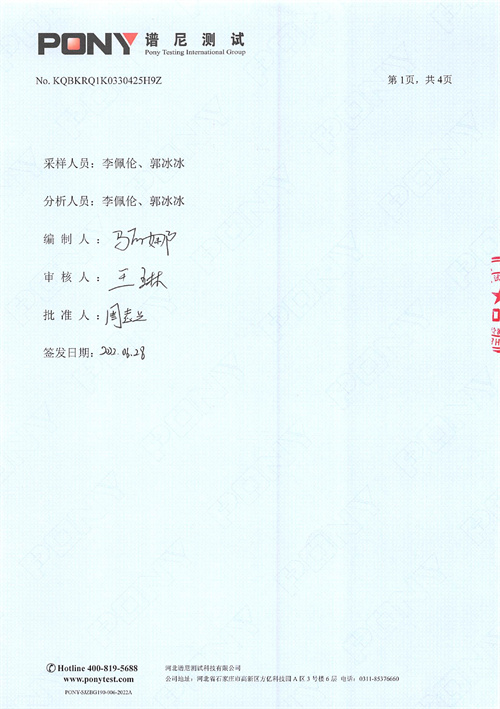 PONY 谱尼测试
Pony Testing International Group
No. KQBKRQ1K0330425H9Z 第1页，共4页
采样人员：李佩伦、郭冰冰
分析人员：李佩伦、郭冰冰
编 制 人：
审 核 人：王琳
批 准 人：
签发日期：2022.06.28
Hotline 400-819-5688 河北谱尼测试科技有限公司
www.ponytest.com 公司地址：河北省石家庄市高新区方亿科技园A区3号楼6层 电话：0311-85376660
PONY-SJZBG190-006-2022A